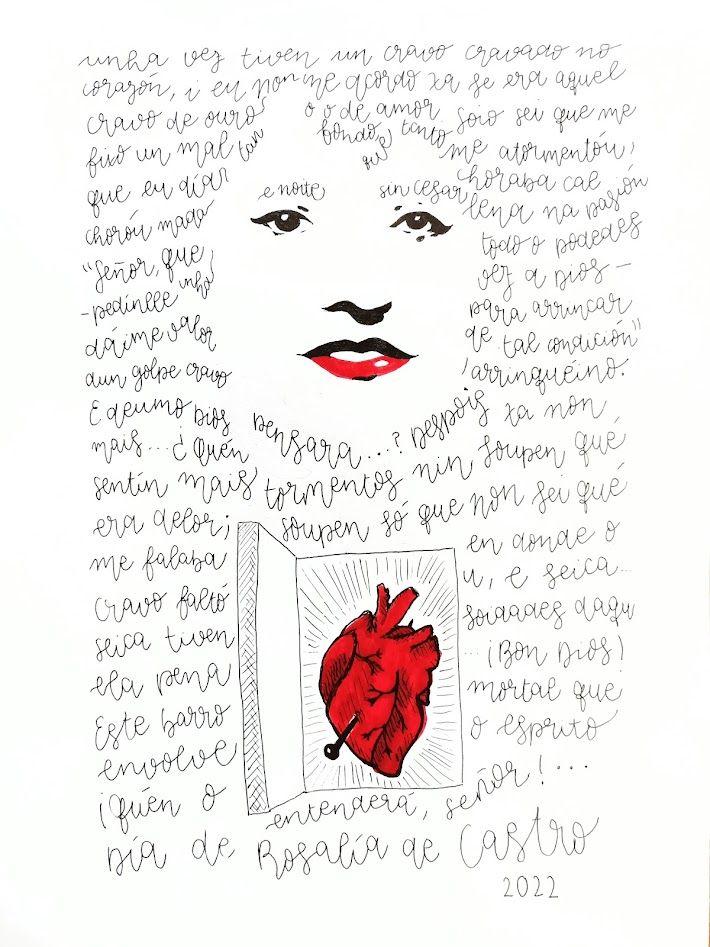 unha vez tiven un cravo cravado no
corazón, i eu non me acordo xa se era aquel
cravo de ouro o o de amor Soio sei que me
fixo un mal tan fondo, que tanto me atormentóu,
que eu día e noite sin cesar choraba cal
choróu mada lena na pasión
"Señor, que todo o podedes
-pedinlle unha vez a Dios-
dáime valor para arrincar
dun golpe cravo de tal condición"
E deumo Dios, arrinqueino.
mais...¿Quén pensara...? Despois xa non
sentín mais tormentos nin soupen qué
era delor; soupen só que non sei qué
me falaba en donde o
cravo faltó u, e seica...
seica tiven soidades daqu
ela pena ...¡Bon Dios!
Este barro mortal que
envolve o esprito
¡Quén o entenderá, señor!...
Día de Rosalía de Castro
2022